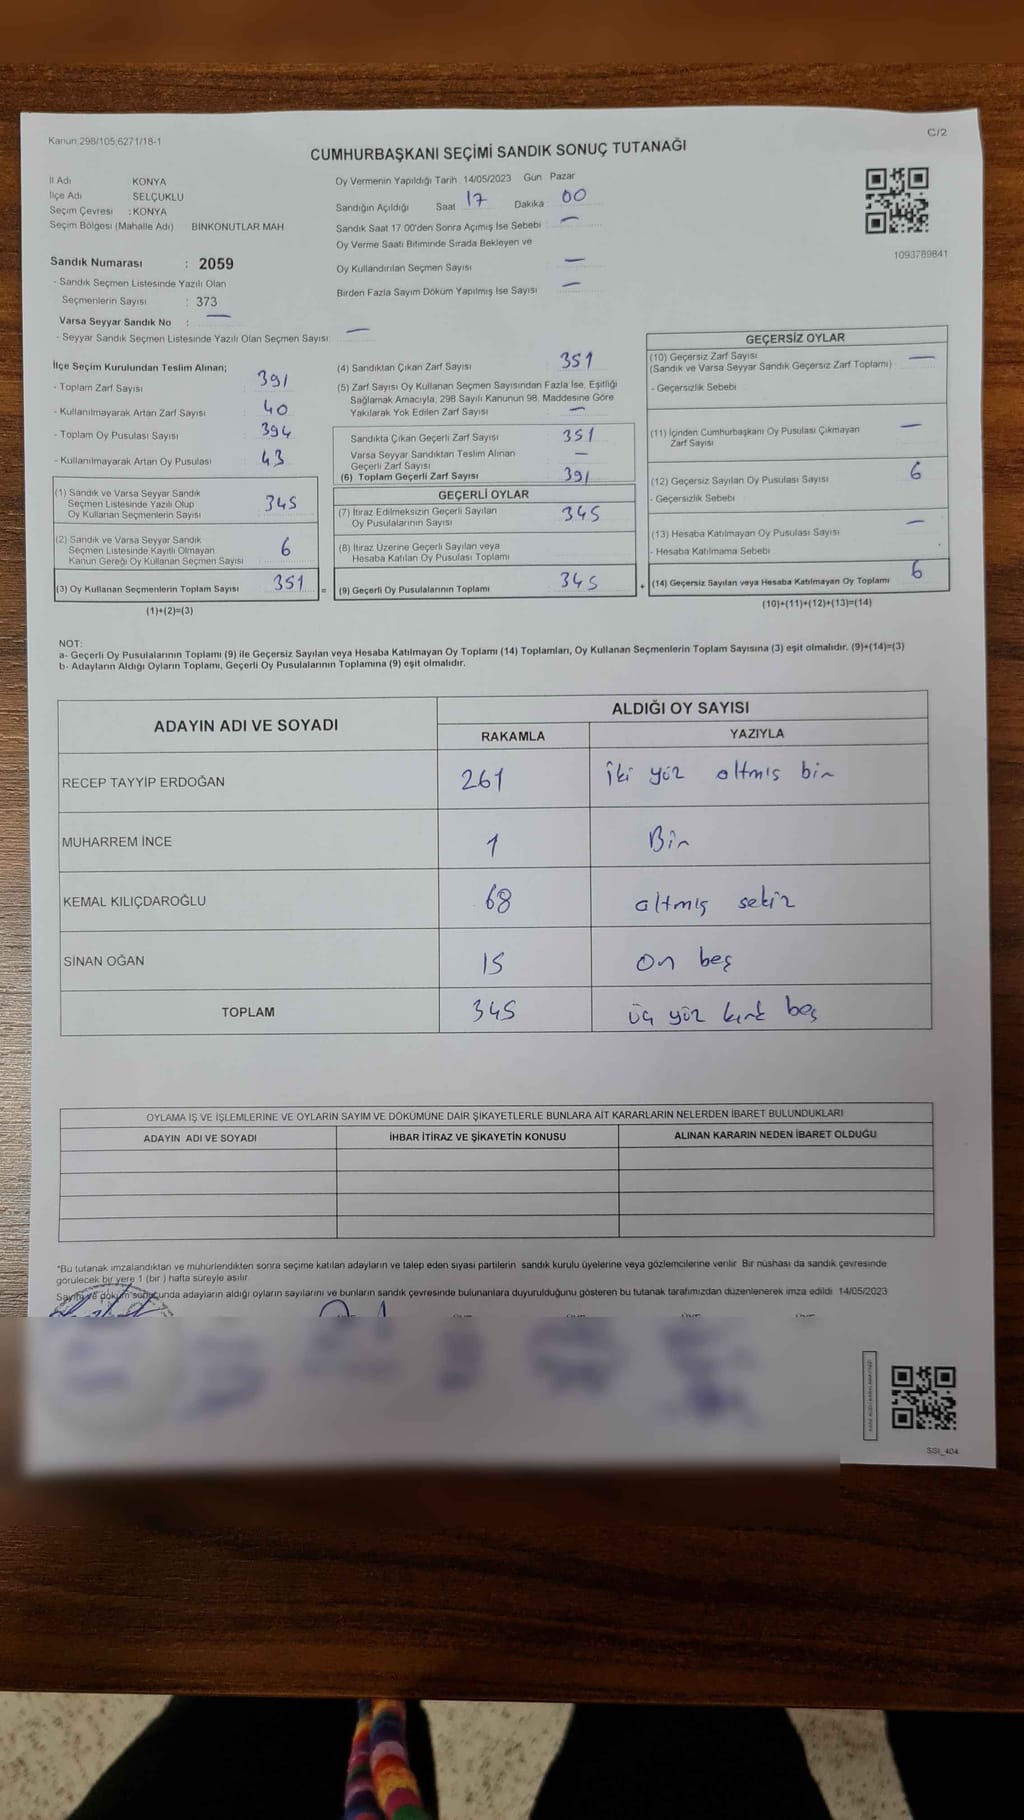 Kanun 298/105;6271/18-1
C/2
CUMHURBAŞKANI SEÇİMİ SANDIK SONUÇ TUTANAĞI
İl Adı KONYA
İlçe Adı SELÇUKLU
Seçim Çevresi : KONYA
Seçim Bölgesi (Mahalle Adı) BİNKONUTLAR MAH
Sandık Numarası : 2059
- Sandık Seçmen Listesinde Yazılı Olan
Seçmenlerin Sayısı : 373
Varsa Seyyar Sandık No : —
- Seyyar Sandık Seçmen Listesinde Yazılı Olan Seçmen Sayısı: —
Oy Vermenin Yapıldığı Tarih 14/05/2023 Gün Pazar
Sandığın Açıldığı Saat 17 Dakika 00
Sandık Saat 17:00'den Sonra Açımış İse Sebebi —
Oy Verme Saati Bitiminde Sırada Bekleyen ve
Oy Kullandırılan Seçmen Sayısı —
Birden Fazla Sayım Döküm Yapılmış İse Sayısı —
1093789841
İlçe Seçim Kurulundan Teslim Alınan;
- Toplam Zarf Sayısı 391
- Kullanılmayarak Artan Zarf Sayısı 40
- Toplam Oy Pusulası Sayısı 394
- Kullanılmayarak Artan Oy Pusulası 43
(1) Sandık ve Varsa Seyyar Sandık
Seçmen Listesinde Yazılı Olup
Oy Kullanan Seçmenlerin Sayısı 345
(2) Sandık ve Varsa Seyyar Sandık
Seçmen Listesinde Kayıtlı Olmayan
Kanun Gereği Oy Kullanan Seçmen Sayısı 6
(3) Oy Kullanan Seçmenlerin Toplam Sayısı 351
(1)+(2)=(3)
(4) Sandıktan Çıkan Zarf Sayısı 351
(5) Zarf Sayısı Oy Kullanan Seçmen Sayısından Fazla İse, Eşitliği
Sağlamak Amacıyla, 298 Sayılı Kanunun 98. Maddesine Göre
Yakılarak Yok Edilen Zarf Sayısı —
Sandıkta Çıkan Geçerli Zarf Sayısı 351
Varsa Seyyar Sandıktan Teslim Alınan
Geçerli Zarf Sayısı —
(6) Toplam Geçerli Zarf Sayısı 391
GEÇERLİ OYLAR
(7) İtiraz Edilmeksizin Geçerli Sayılan
Oy Pusulalarının Sayısı 345
(8) İtiraz Üzerine Geçerli Sayılan veya
Hesaba Katılan Oy Pusulası Toplamı
= (9) Geçerli Oy Pusulalarının Toplamı 345 +
GEÇERSİZ OYLAR
(10) Geçersiz Zarf Sayısı —
(Sandık ve Varsa Seyyar Sandık Geçersiz Zarf Toplamı)
- Geçersizlik Sebebi
(11) İçinden Cumhurbaşkanı Oy Pusulası Çıkmayan —
Zarf Sayısı
(12) Geçersiz Sayılan Oy Pusulası Sayısı 6
- Geçersizlik Sebebi
(13) Hesaba Katılmayan Oy Pusulası Sayısı —
- Hesaba Katılmama Sebebi
(14) Geçersiz Sayılan veya Hesaba Katılmayan Oy Toplamı 6
(10)+(11)+(12)+(13)=(14)
NOT:
a- Geçerli Oy Pusulalarının Toplamı (9) ile Geçersiz Sayılan veya Hesaba Katılmayan Oy Toplamı (14) Toplamları, Oy Kullanan Seçmenlerin Toplam Sayısına (3) eşit olmalıdır. (9)+(14)=(3)
b- Adayların Aldığı Oyların Toplamı, Geçerli Oy Pusulalarının Toplamına (9) eşit olmalıdır.
ADAYIN ADI VE SOYADI ALDIĞI OY SAYISI
RAKAMLA YAZIYLA
RECEP TAYYİP ERDOĞAN 261 iki yüz altmış bir
MUHARREM İNCE 1 Bir
KEMAL KILIÇDAROĞLU 68 altmış sekiz
SİNAN OĞAN 15 on beş
TOPLAM 345 üç yüz kırk beş
OYLAMA İŞ VE İŞLEMLERİNE VE OYLARIN SAYIM VE DÖKÜMÜNE DAİR ŞİKAYETLERLE BUNLARA AİT KARARLARIN NELERDEN İBARET BULUNDUKLARI
ADAYIN ADI VE SOYADI İHBAR İTİRAZ VE ŞİKAYETİN KONUSU ALINAN KARARIN NEDEN İBARET OLDUĞU
*Bu tutanak imzalandıktan ve mühürlendikten sonra seçime katılan adayların ve talep eden siyasi partilerin sandık kurulu üyelerine veya gözlemcilerine verilir. Bir nüshası da sandık çevresinde
görülecek bir yere 1 (bir) hafta süreyle asılır.
Sayım ve döküm sonucunda adayların aldığı oyların sayılarını ve bunların sandık çevresinde bulunanlara duyurulduğunu gösteren bu tutanak tarafımızdan düzenlenerek imza edildi 14/05/2023
SSI_404